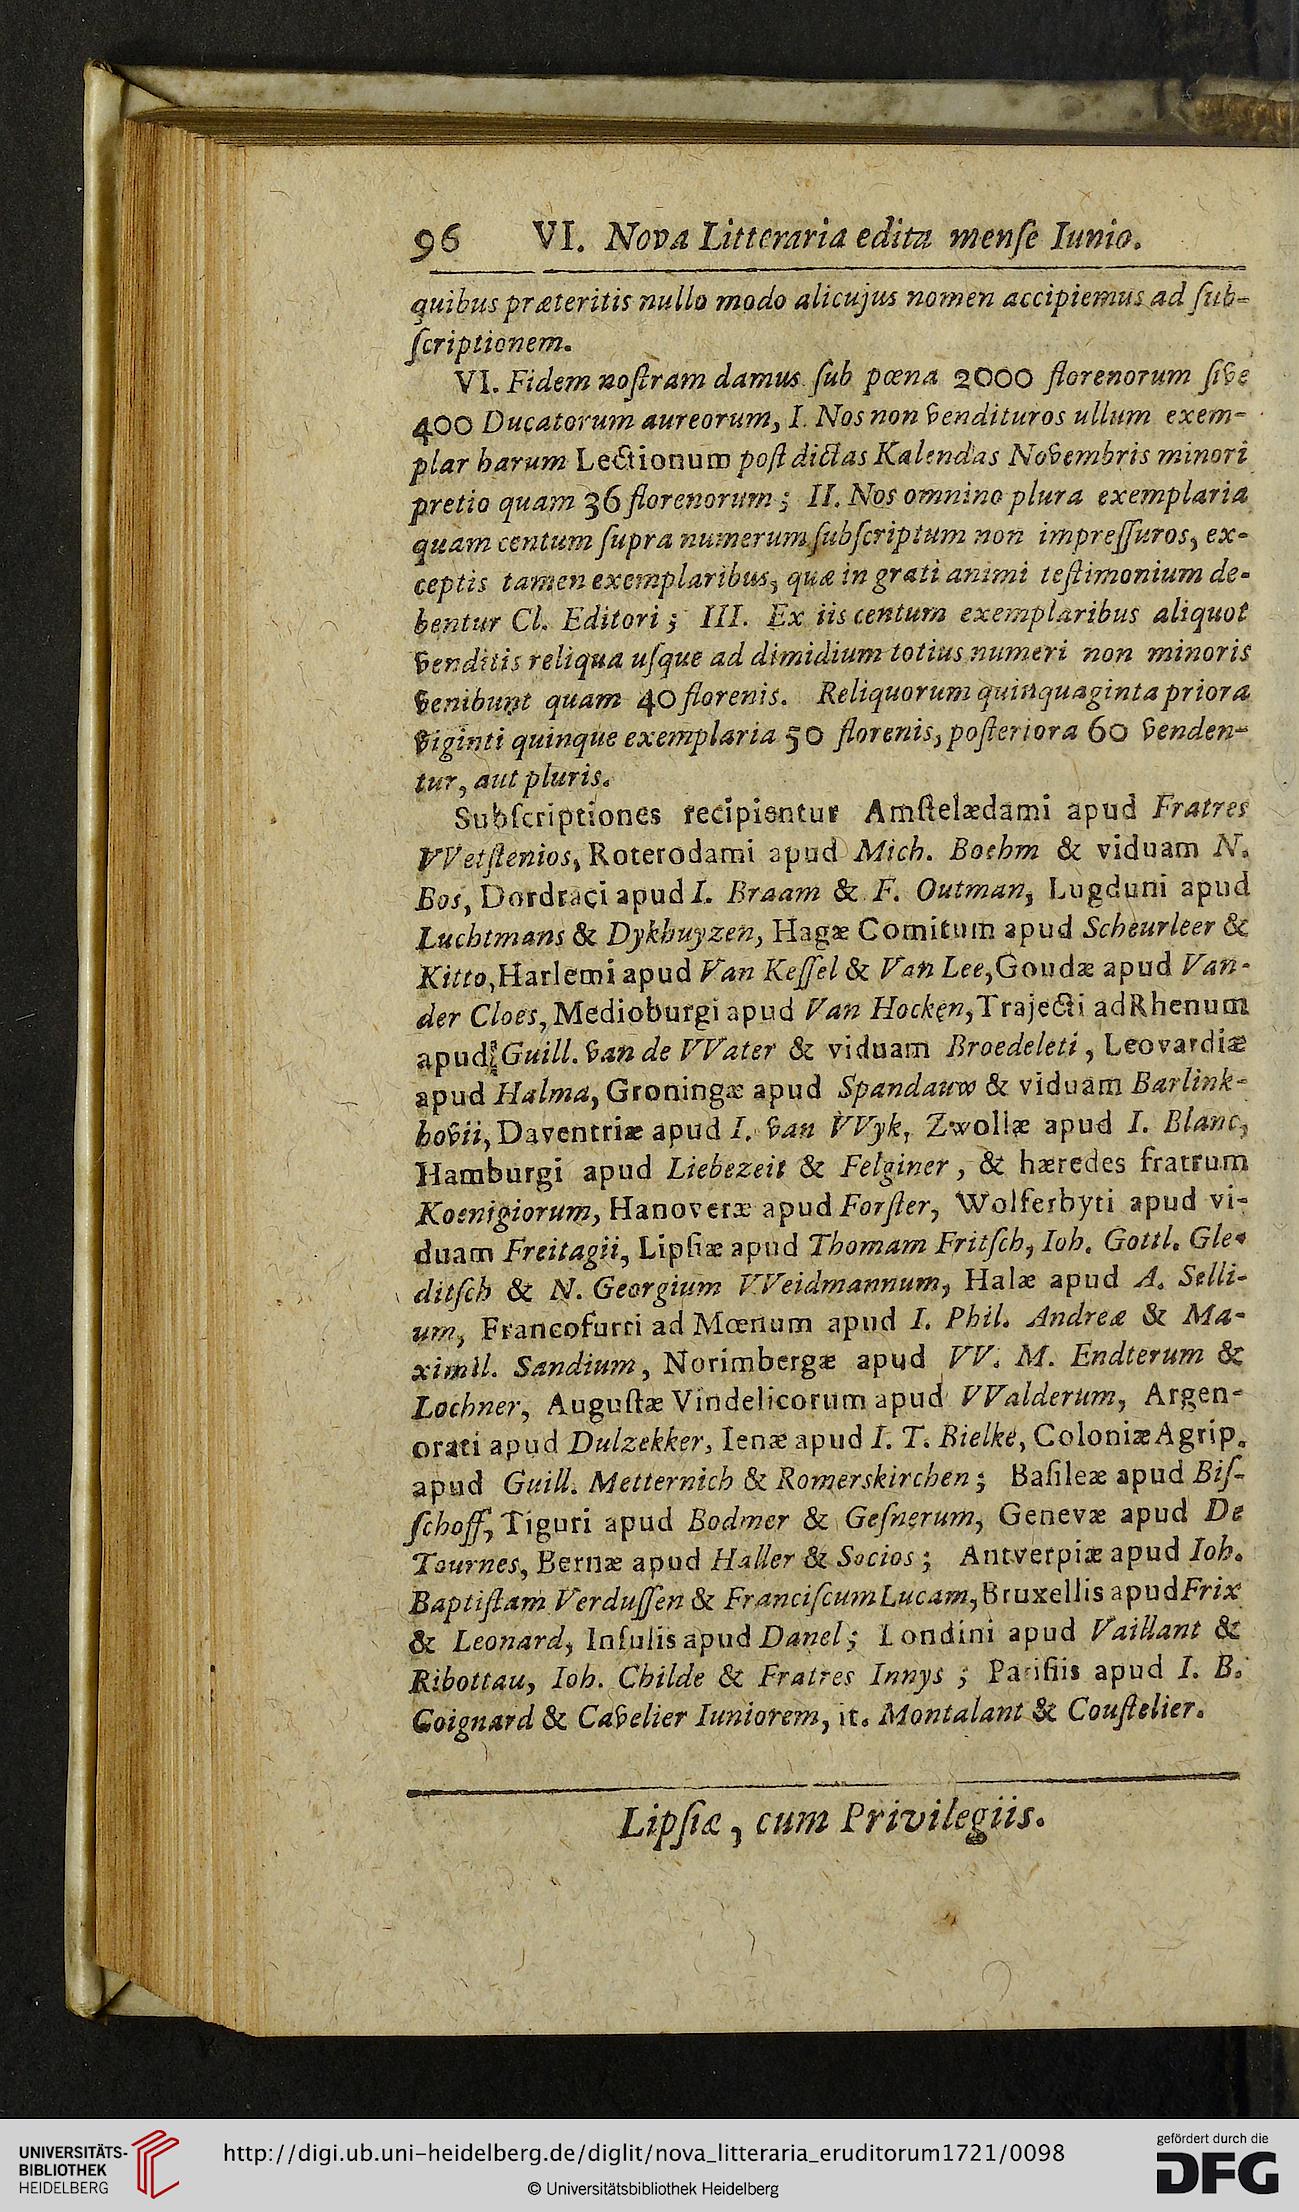 96 VI. Nova Litteraria edita menſe Iunio.
quibus præteritis nullo modo alicujus nomen accipiemus ad ſub-
ſcriptionem.
VI. Fidem noſtram damus ſub pœna 2000 florenorum ſive
400 Ducatorum aureorum, I. Nos non vendituros ullum exem-
plar harum Lectionum poſt dictas Kalendas Novembris minori
pretio quam 36 florenorum; II. Nos omnino plura exemplaria
quam centum ſupra numerum ſubſcriptum non impreſſuros, ex-
ceptis tamen exemplaribus, quæ in grati animi teſtimonium de-
bentur Cl. Editori; III. Ex iis centum exemplaribus aliquot
venditis reliqua uſque ad dimidium totius numeri non minoris
venibunt quam 40 florenis. Reliquorum quinquaginta priora
viginti quinque exemplaria 50 florenis, poſteriora 60 venden-
tur, aut pluris.
Subſcriptiones recipientur Amſtelædami apud Fratres
VVetſtenios, Roterodami apud Mich. Boehm & viduam N.
Bos, Dordraci apud I. Braam & F. Outman, Lugduni apud
Luchtmans & Dykhuyzen, Hagæ Comitum apud Scheurleer &
Kitto, Harlemi apud Van Keſſel & Van Lee, Goudæ apud Van-
der Cloes, Medioburgi apud Van Hocken, Trajecti ad Rhenum
apud Guill. van de VVater & viduam Broedeleti, Leovardiæ
apud Halma, Groningæ apud Spandauw & viduam Barlink-
hovii, Daventriæ apud I. van VVyk, Zwollæ apud I. Blanc,
Hamburgi apud Liebezeit & Felginer, & hæredes fratrum
Koenigiorum, Hanoveræ apud Forſter, Wolferbyti apud vi-
duam Freitagii, Lipſiæ apud Thomam Fritſch, Ioh. Gottl. Gle-
ditſch & N. Georgium VVeidmannum, Halæ apud A. Selli-
um, Francofurti ad Mœnum apud I. Phil. Andreæ & Ma-
ximil. Sandium, Norimbergæ apud VV. M. Endterum &
Lochner, Auguſtæ Vindelicorum apud VValderum, Argen-
orati apud Dulzekker, Ienæ apud I. T. Bielke, Coloniæ Agrip.
apud Guill. Metternich & Romerskirchen; Baſileæ apud Biſ-
ſchoff, Tiguri apud Bodmer & Geſnerum, Genevæ apud De
Tournes, Bernæ apud Haller & Socios; Antverpiæ apud Ioh.
Baptiſtam Verduſſen & Franciſcum Lucam, Bruxellis apud Frix
& Leonard, Inſulis apud Danel; Londini apud Vaillant &
Ribottau, Ioh. Childe & Fratres Innys; Pariſiis apud I. B.
Coignard & Cavelier Iuniorem, it. Montalant & Couſtelier.
Lipſiæ, cum Privilegiis.
UNIVERSITÄTS-
BIBLIOTHEK
HEIDELBERG
http://digi.ub.uni-heidelberg.de/diglit/nova_litteraria_eruditorum1721/0098
© Universitätsbibliothek Heidelberg
gefördert durch die
DFG